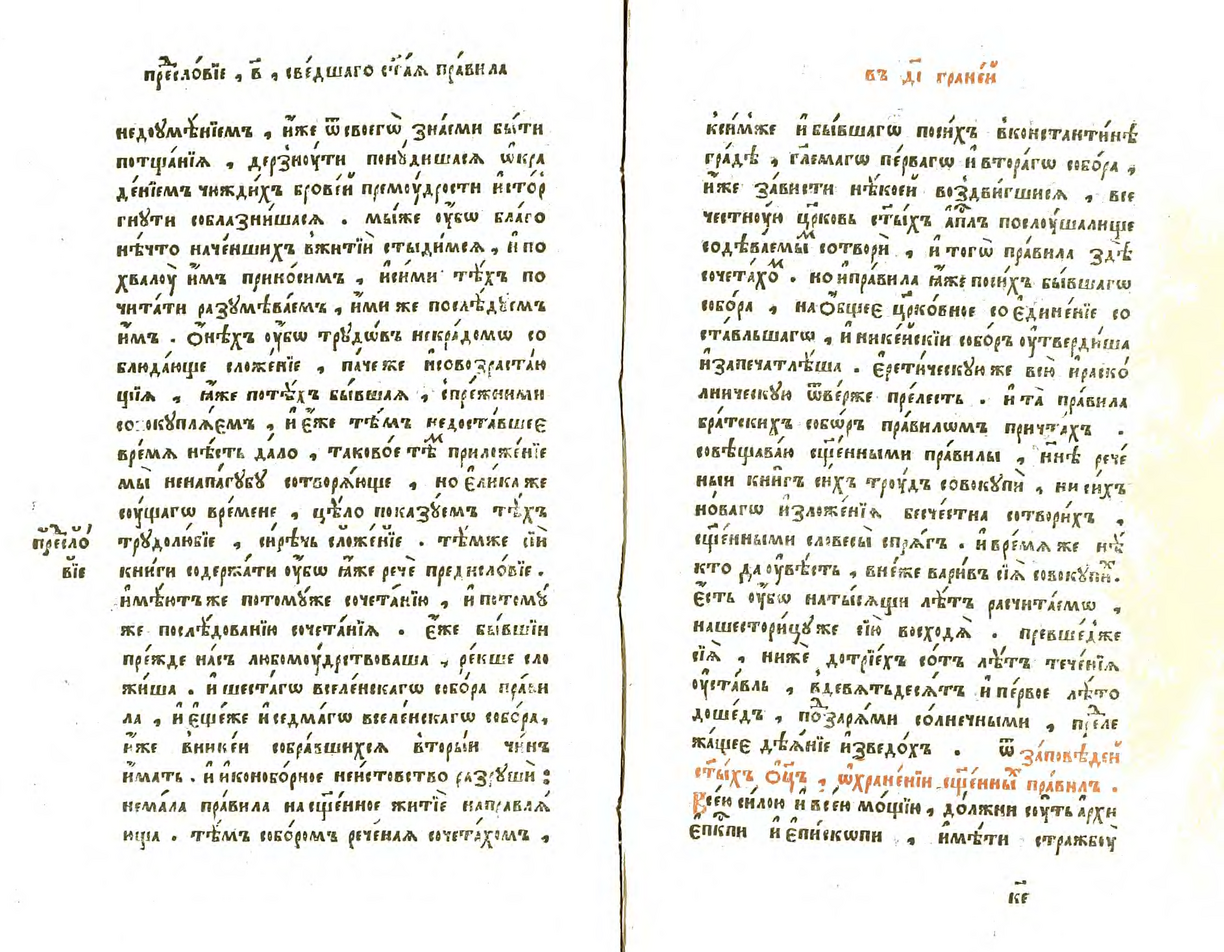 предⷭ҇ло́вїе , в҃ , све́дшаго ст҃а́ѧ пра́вила
недоꙋмѣ́нїемъ , и҆́же ѿ своегѡ̀ зна́еми бы́ти
потща́нїѧ , дерзноу́ти понꙋ́дишасѧ ѡ҆кра
де́нїемъ чюжди́хъ брове́й премоу́дрости и҆сто́р
гнꙋти соблазни́шасѧ . мы́же ᲂу҆́бѡ бла́го
нѣ́что наче́ншихъ вжитїѝ стыди́мсѧ , и҆ по
хвалоу̀ и҆̀мъ прино́симъ , и҆си́ми тѣ́хъ по
чита́ти разꙋмѣ́ваемъ , и҆́ми же послѣ́дꙋемъ
и҆̀мъ . ѻ҆нѣ́хъ ᲂу҆́бѡ трꙋдѡ́въ некра́домѡ со
блюда́юще сложе́нїе , па́че же и҆совозраста́ю
щїѧ , ꙗ҆́же потѣ́хъ бы́вшаѧ , спре́жними
совокꙋплѧ́емъ , и҆ є҆́же тѣ́мъ недоста́вшее
вре́мѧ нѣ́сть да́ло , таково́е тѣⷨ приложе́нїе
мы̀ ненапа́гꙋбꙋ сотворѧ́юще , но є҆ли́ка же
соу́щагѡ вре́мене , цѣ́ло пока́зꙋемъ тѣ́хъ
трꙋдолю́бїе , си́рѣчь сло́женїе . тѣ́мже сїѝ
кни́ги содержа́ти ᲂу҆́бѡ ꙗ҆́же речѐ предисло́вїе .
и҆мѣ́ютъ же потомꙋ́же сочета́нїю , и҆ потомꙋ́
же послѣ́дованїю сочета́нїѧ . є҆́же бы́вшїи
пре́жде на́съ любомоу́дрствоваша , ре́кше сло
жи́ша . и҆ шеста́гѡ вселе́нскагѡ собо́ра пра́ви
ла , и҆ є҆ще́же и҆ седма́гѡ вселе́нскагѡ собо́ра,
и҆́же вники́и собра́вшихсѧ вторы́и чи́нъ
и҆́мать . и҆ иконобо́рное неи́стовство разрꙋшѝ :
нема́ла пра́вила на сщ҃е́нное житїѐ направлѧ́
юща . тѣ́мъ собо́ромъ рече́наѧ сочета́хомъ ,
предⷭ҇ло́
вїе
въ д҃і гране́й
кси́мже и҆ бы́вшагѡ поси́хъ вконстанти́нѣ
гра́дѣ , гл҃емагѡ пе́рвагѡ и҆ втора́гѡ собо́ра ,
и҆́же за́висти нѣ́коей воздви́гшисѧ , все
честноу́ю цр҃ковь ст҃ы́хъ а҆пⷭ҇лъ послоу́шалище
содѣ́ваемыⷨ сотворѝ , и҆ тогѡ̀ пра́вила здѣ̀
сочета́хоⷨ . но и҆ пра́вила ꙗ҆́же поси́хъ бы́вшагѡ
собо́ра , на ѻ҆́бщее цр҃ко́вное соедине́нїе со
ста́вльшагѡ , и҆ нике́йскїи собо́ръ ᲂу҆тверди́ша
и҆ запечатлѣ́ша . є҆рети́ческꙋю же всю̀ и҆раско́
лническꙋю ѿве́рже пре́лесть . и҆ та̀ пра́вила
бра́тскихъ собѡ́ръ пра́вилѡмъ причта́хъ .
совѣща́ваю сщ҃е́нными пра́вилы , нн҃ѣ рече́
ныи кни́гъ си́хъ троу́дъ совокꙋпѝ , ни си́хъ
но́вагѡ и҆зложе́нїѧ бесче́стна сотвори́хъ ,
сщ҃е́нными словесы̀ спрѧ́гъ . и҆ вре́мѧ же нѣ́
кто да ᲂу҆вѣ́сть , вне́же вари́въ сїѧ̀ совокꙋпи́хъ.
є҆́сть ᲂу҆́бѡ на ты́сѧщи лѣ́тъ расчита́емѡ ,
на шестори́цꙋ же сїю̀ восходѧ̀ . превше́дже
сїѧ̀ , нижѐ дотрїе́хъ со́тъ лѣ́тъ тече́нїѧ
ᲂу҆ста́вль , в девѧтьдесѧ́тъ и҆ пе́рвое лѣ́то
доше́дъ , под̾ зарѧ́ми со́лнечными , предⷭ҇ле
жа́щее дѣѧ́нїе и҆зведо́хъ . ѿ за́повѣдей
ст҃ы́хъ ѻ҆ц҃ъ , ѡ҆ хране́нїи сщ҃е́нныⷯ пра́вилъ .
Все́ю си́лою и҆ все́ю мо́щїю , до́лжни соу́ть архи
є҆пⷭ҇кпи и҆ є҆пи́скѡпи , и҆мѣ́ти стра́жбоу
к҃е